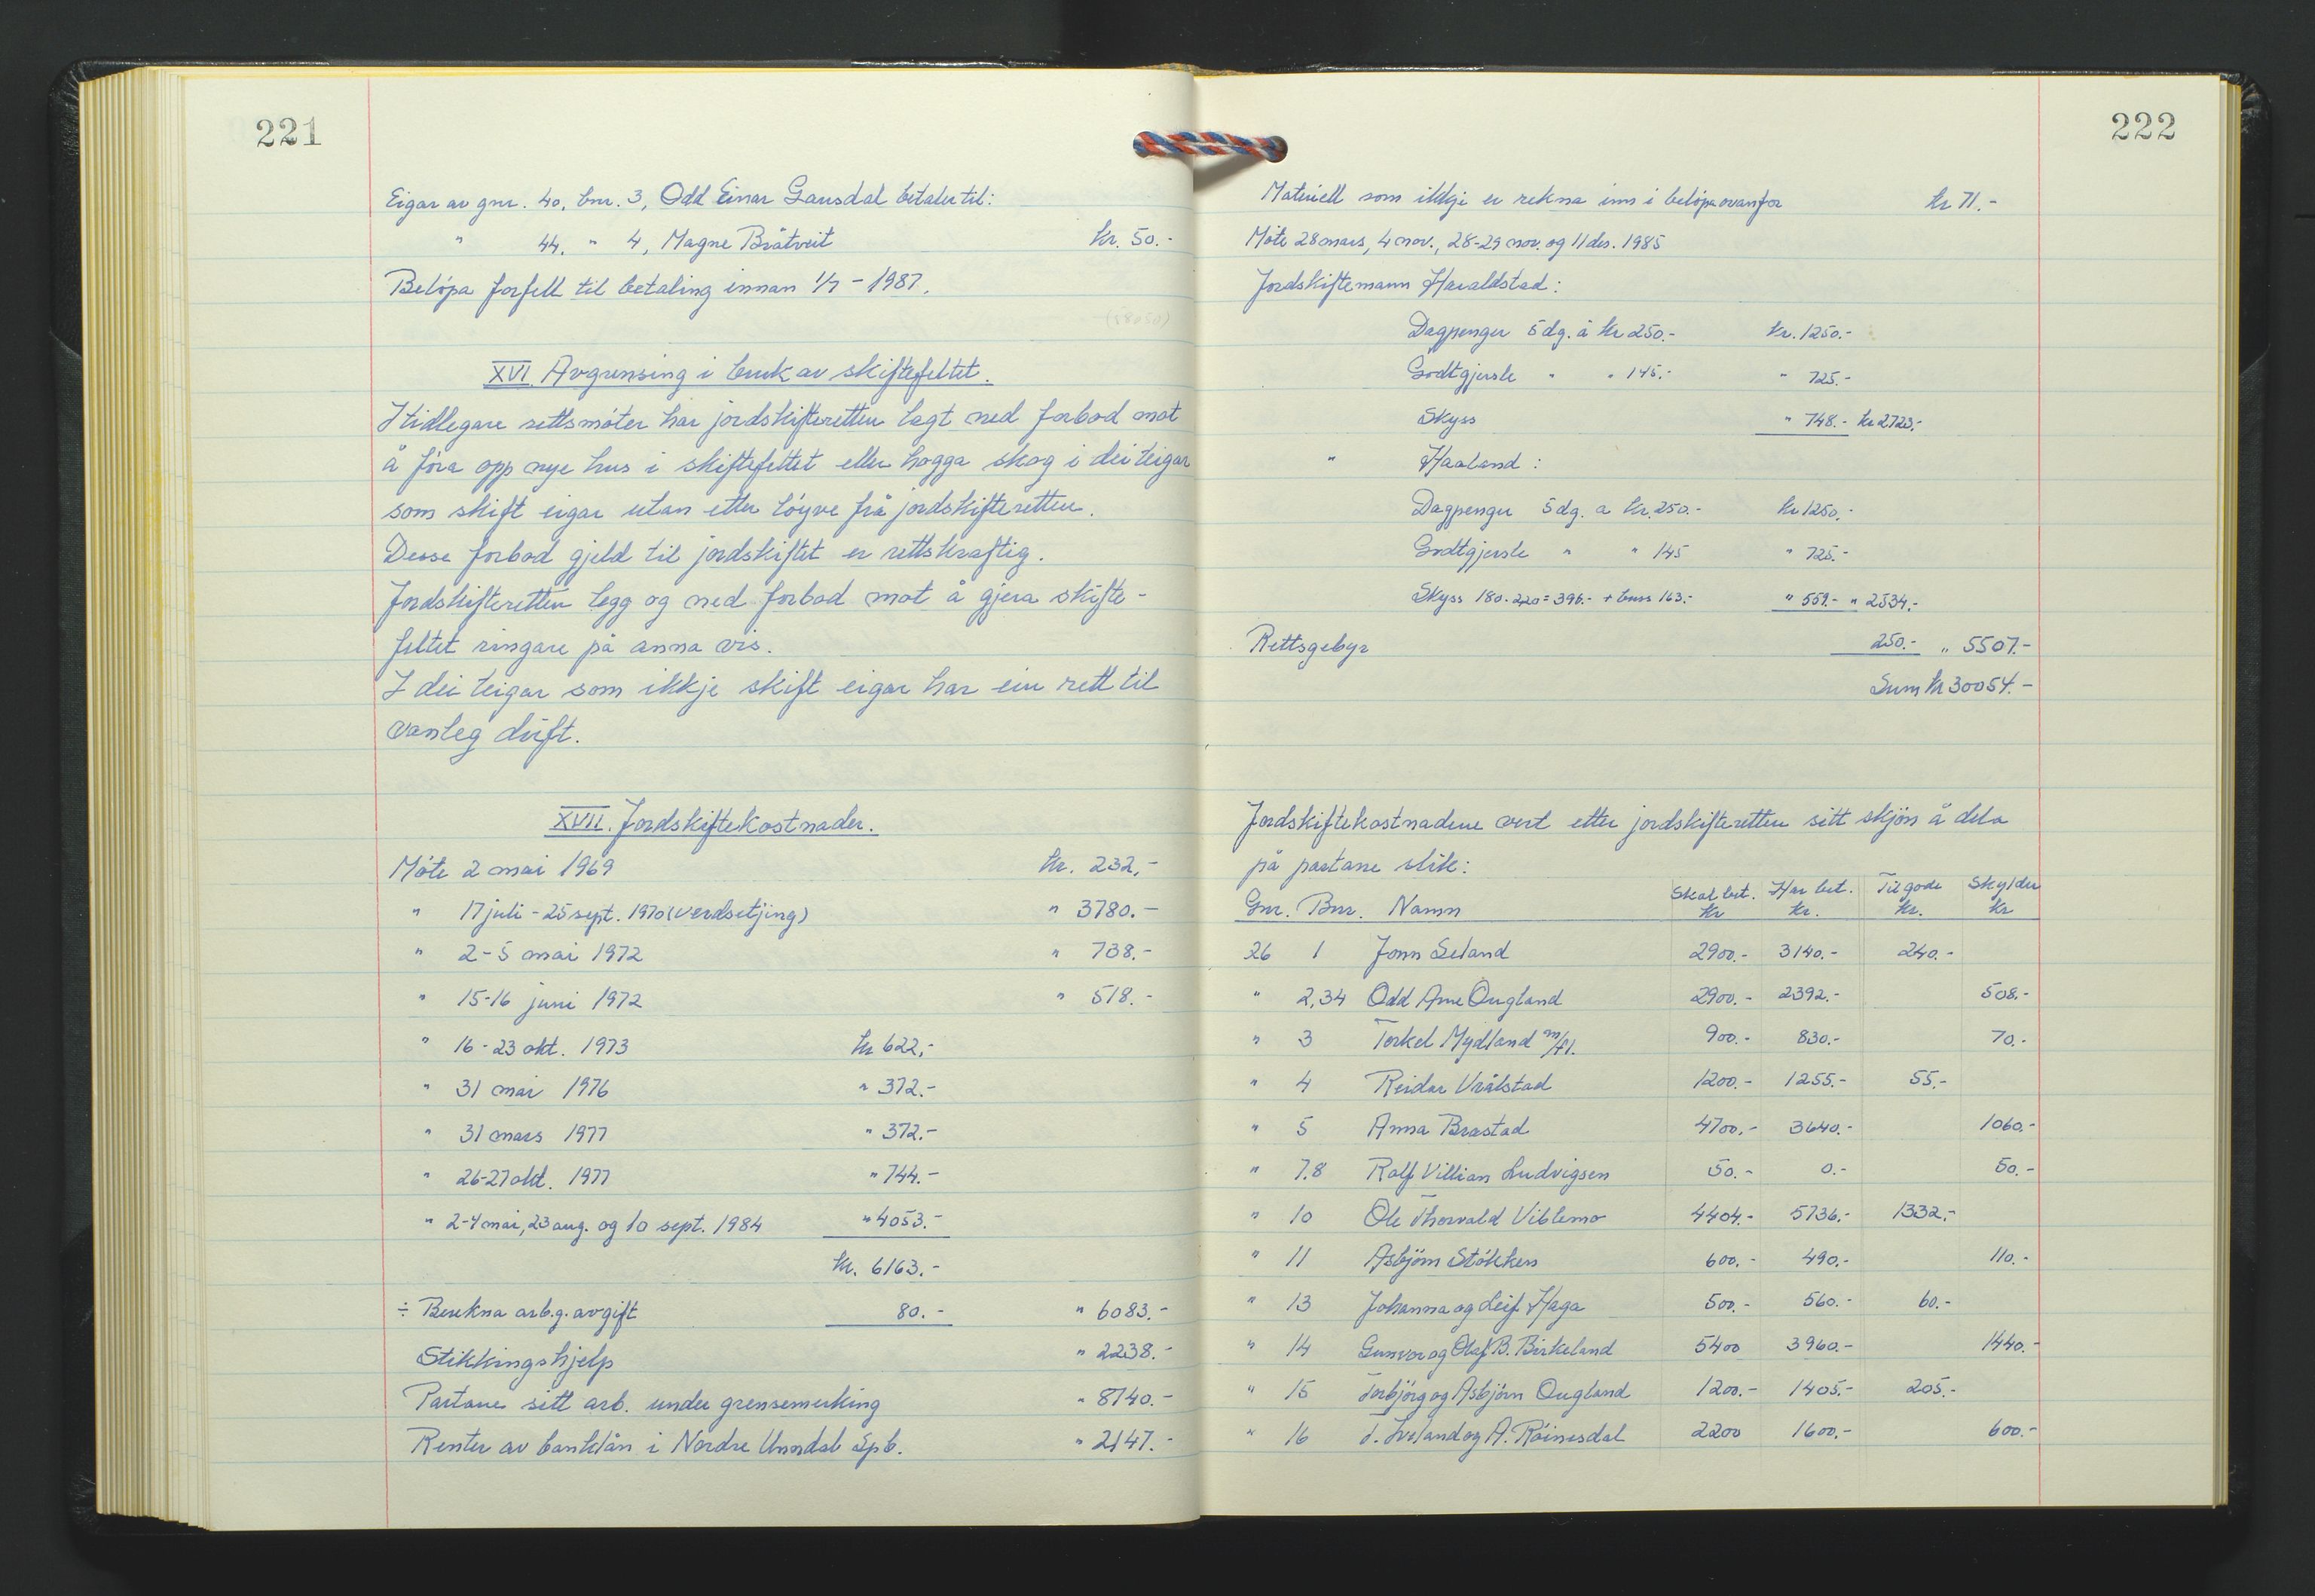 221
Eigar av gnr. 40, bnr. 3, Odd Einar Gausdal betaler til:
" 44, " 4, Magne Bråtveit kr. 50.-
Belöpa forfell til betaling innan 1/7 - 1987.
XVI. Avgrensing i bruk av skiftefeltet.
I tidlegare rettsmöter har jordskifteretten lagt ned forbod mot
å föra opp nye hus i skiftefeltet eller hogga skog i dei teigar
som skift eigar utan etter löyve frå jordskifteretten.
Desse forbod gjeld til jordskiftet er rettskraftig.
Jordskifteretten legg og ned forbod mot å gjera skifte-
feltet ringare på anna vis.
I dei teigar som ikkje skift eigar har ein rett til
vanleg drift.
XVII. Jordskiftekostnader.
Möte 2 mai 1969 kr. 232,-
" 17 juli - 25 sept. 1970 (verdsetjing) " 3780.-
" 2-5 mai 1972 " 738.-
" 15-16 juni 1972 " 518.-
" 16-23 okt. 1973 kr 622,-
" 31 mai 1976 " 372.-
" 31 mars 1977 " 372.-
" 26-27 okt. 1977 " 744.-
" 2-4 mai, 23 aug. og 10 sept. 1984 " 4053.-
kr. 6163.-
÷ Berekna arb.g. avgift 80.- " 6083.-
Stikkingshjelp " 2238.-
Partane sitt arb. under grensemerking " 8740.-
Renter av banklån i Nordre Unndal Spb. " 2147.-
222
Materiell som ikkje er rekna inn i belöpa ovanfor kr 71.-
Möte 28 mars, 4 nov., 28-29 nov. og 11 des. 1985
Jordskiftemann Haraldstad:
Dagpenger 5 dg. å kr 250.- kr. 1250.-
Godtgjersle " " 145.- " 725.-
Skyss " 748.- kr 2723.-
" Haaland:
Dagpenger 5 dg. a kr. 250.- kr 1250.-
Godtgjersle " " 145 " 725.-
Skyss 180 . 2,20 = 396.- + buss 163.- " 559.- " 2534.-
Rettsgebyr 250.- " 5507.-
Sum kr 30054.-
Jordskiftekostnadene vert etter jordskifteretten sitt skjön å dela
på partane slik:
Gnr. Bnr. Namn Skal bet. kr Har bet. kr. Til gode kr. Skylder kr
26 1 Jonn Leland 2900.- 3140.- 240.-
" 2,34 Odd Arne Ougland 2900.- 2392.- 508.-
" 3 Torkel Mydland m/fl. 900.- 830.- 70.-
" 4 Reidar Vrålstad 1200.- 1255.- 55.-
" 5 Anna Brastad 4700.- 3640.- 1060.-
" 7.8 Rolf Villian Ludvigsen 50.- 0.- 50.-
" 10 Ole Thorvald Viblemo 4404.- 5736.- 1332.-
" 11 Asbjörn Stökken 600.- 490.- 110.-
" 13 Johanna og Leif Haga 500.- 560.- 60.-
" 14 Gunvor og Olaf B. Birkeland 5400 3960.- 1440.-
" 15 Torbjörg og Asbjörn Ougland 1200.- 1405.- 205.-
" 16 T. Iveland og A. Röinesdal 2200 1600.- 600.-